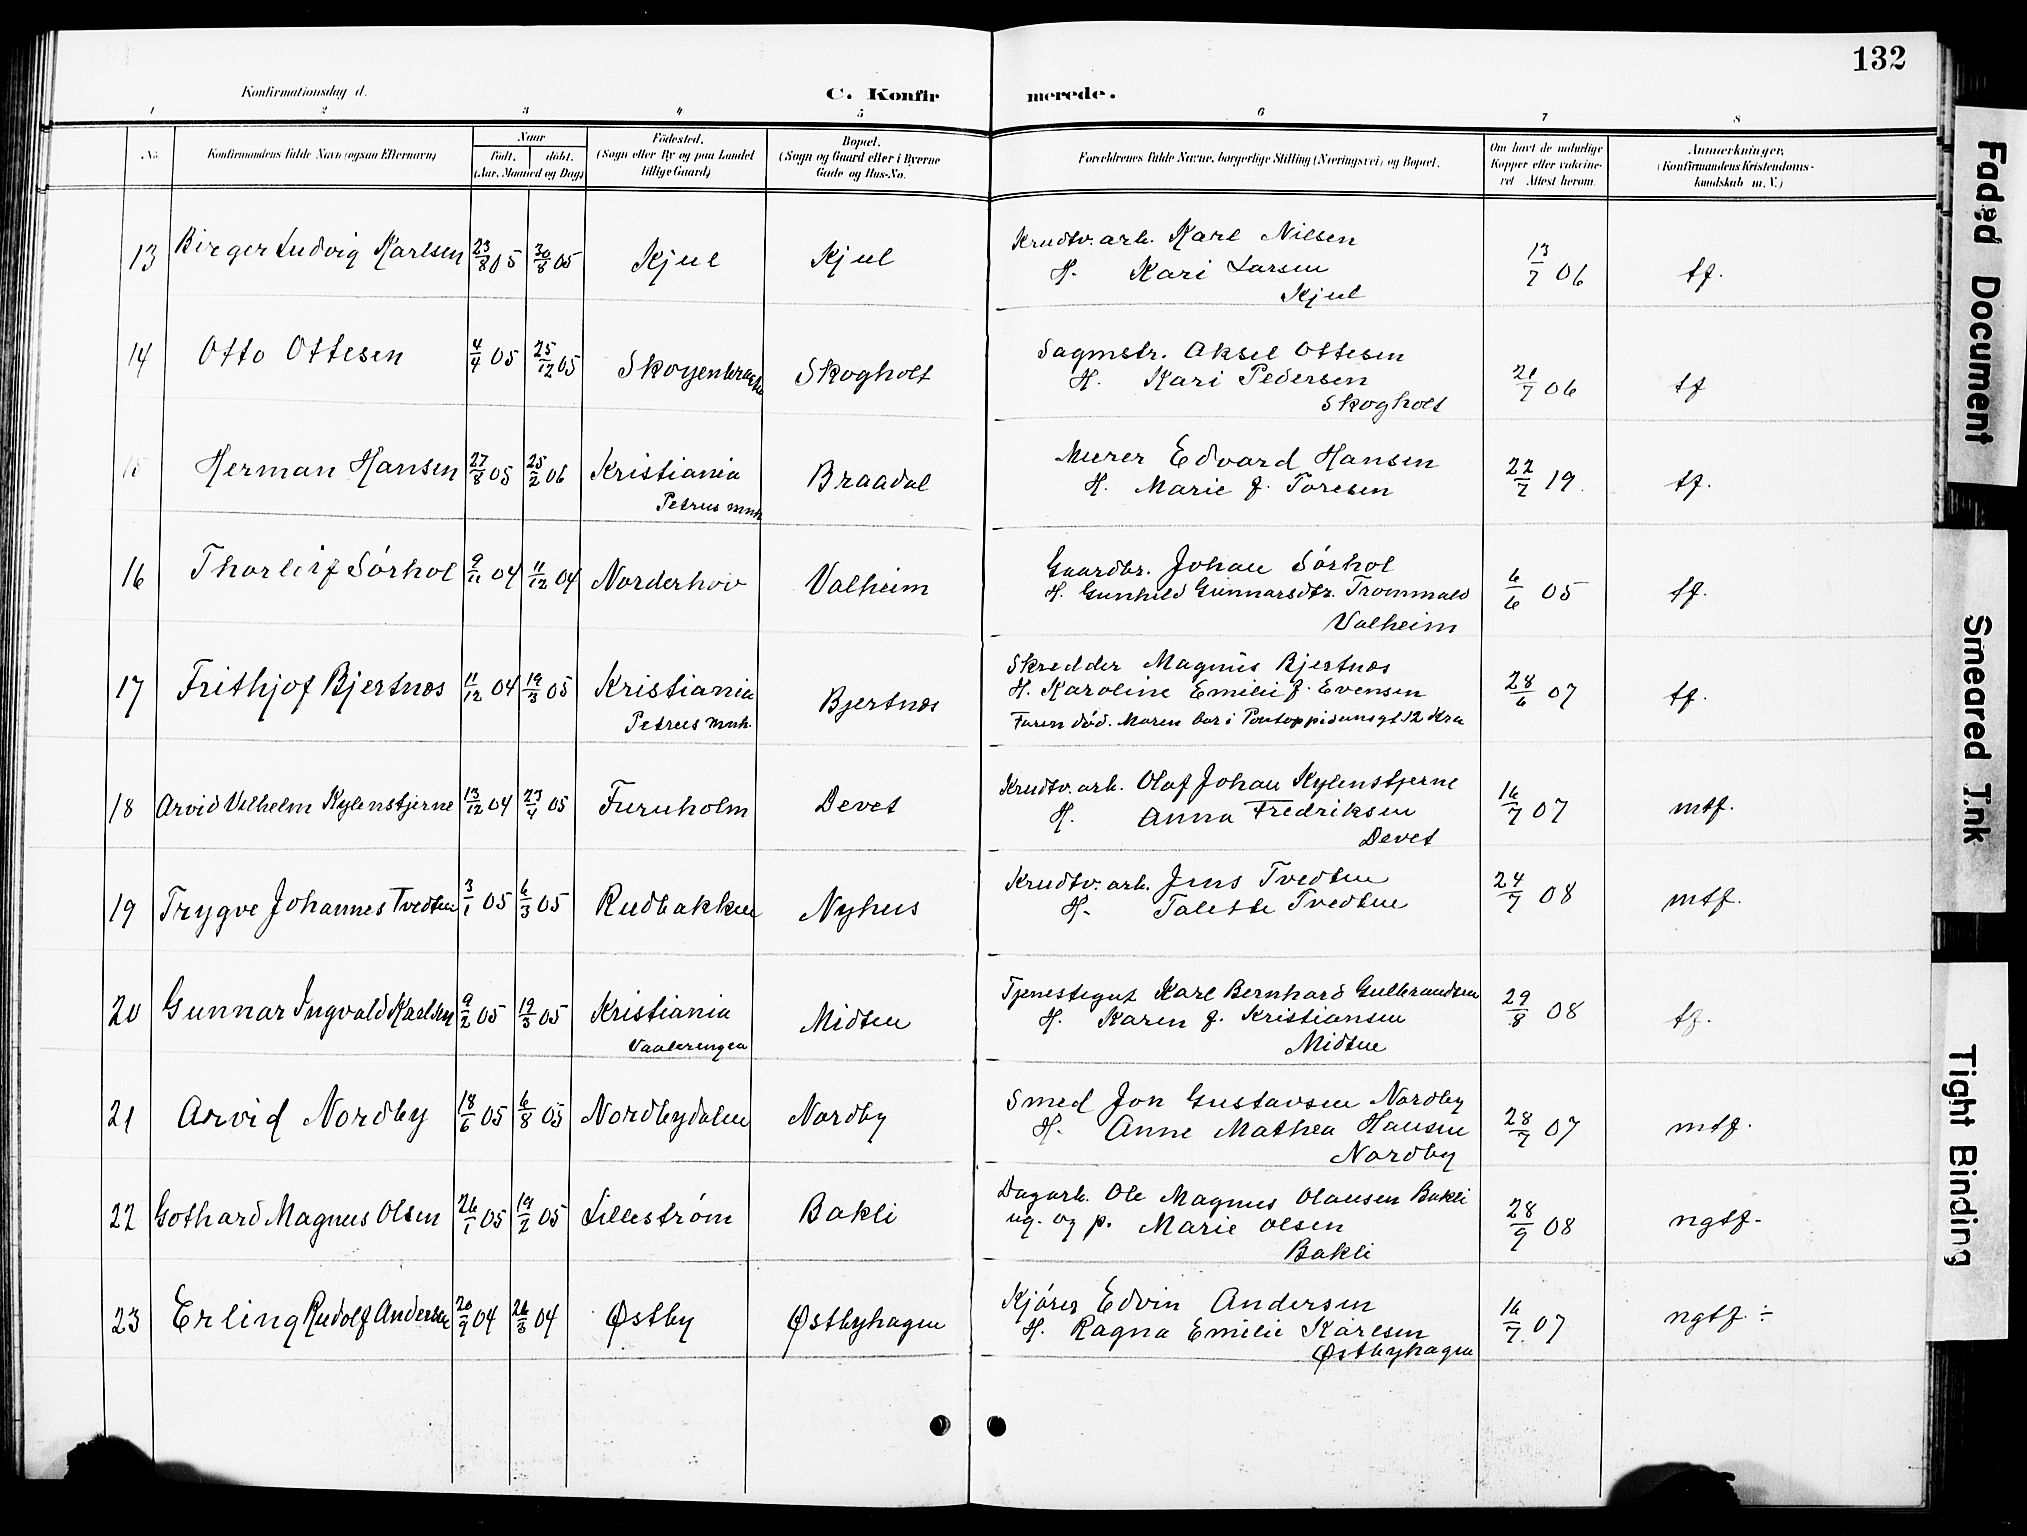 132
Konfirmationsdag d.
C. Konfirmerede.
1 2 3 4 5 6 7 8
No. Konfirmandens fulde Navn (ogsaa Efternavn) Naar født. døbt. (Aar, Maaned og Dag) Fødested. (Sogn eller By og paa Landet tillige Gaard) Bopæl. (Sogn og Gaard eller i Byerne Gade og Hus-No. Forældrenes fulde Navne, borgerlige Stilling (Næringsvei) og Bopæl. Om havt de naturlige Kopper eller vakcineret Attest herom. Anmærkninger, (Konfirmandens Kristendomskundskab m. V.)
13 Birger Ludvig Karlsen 23/8 05 30/8 05 Kjul Kjul Krudtv. arb. Karl Nilsen 13/7 06 tf.
H. Kari Larsen
Kjul
14 Otto Ottesen 4/4 05 25/12 05 Skogholt Sagmstr. Aksel Ottesen 21/7 06 tf
H. Kari Pedersen
Skogholt
15 Herman Hansen 27/8 05 25/2 06 Kristiania Braadal Murer Edvard Hansen 22/7 19. tf.
Petrus mnh H. Marie f. Toresen
16 Thorleif Sørhol 9/11 04 11/12 04 Norderhov Valheim Gaardbr. Johan Sørhol 6/6 05 tf.
H. Gunhild Gunnarsdtr. Trommald
Valheim
17 Frithjof Bjertnæs 11/12 04 19/3 05 Kristiania Bjertnæs Skredder Magnus Bjertnæs 28/6 07 tf.
Petrus mnh. H. Karoline Emilie f. Evensen
Faren død. Moren bor i Pontoppidansgt 12 Kra
18 Arvid Vilhelm Kylenstjerne 13/12 04 23/4 05 Furuholm Devet Krudtv. arb. Olaf Johan Kylenstjerne 16/7 07 mtf.
H. Anna Fredriksen
Devet
19 Trygve Johannes Tvedten 3/1 05 6/3 05 Rudbakken Nyhus Krudtv. arb. Jens Tvedten 24/7 08 mtf.
H. Talette Tvedten
20 Gunnar Ingvald Karlsen 9/2 05 19/3 05 Kristiania Midten Tjenestegut Karl Bernhard Gulbrandsen 29/8 08 tf.
Vaalerengen H. Karen f. Kristiansen
Midten
21 Arvid Nordby 18/6 05 6/8 05 Nordbydalen Nordby Smed Jon Gustavsen Nordby 28/7 07 mtf.
H. Anne Mathea Hansen
Nordby
22 Gothard Magnus Olsen 26/1 05 19/2 05 Lillestrøm Bakli Dagarb. Ole Magnus Olausen Bakli 28/9 08 ngtf.
ug. og p. Marie Olsen
Bakli
23 Erling Rudolf Andersen 20/9 04 04 Østby Østbyhagen Kjører Edvin Andersen 16/7 07 ngtf. ÷
H. Ragna Emilie Karlsen
Østbyhagen
Faded Document
Smeared Ink
Tight Binding